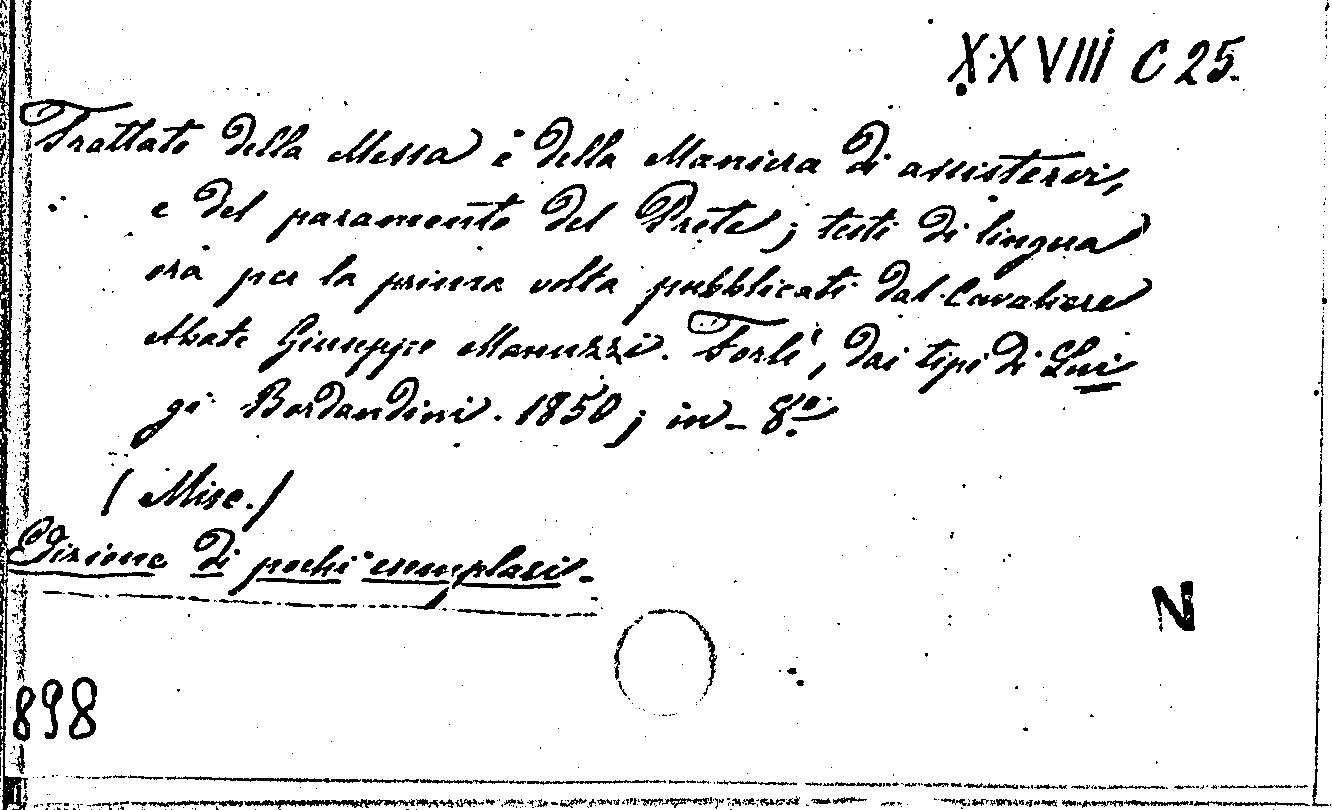 XXVIII C 25.
Trattato della Messa e della Maniera di assistervi,
e del paramento del Prete; testi di lingua
ora per la prima volta pubblicati dal Cavaliere
Abate Giuseppe Manuzzi. Forlì, dai tipi di Lui
gi Bordandini. 1850; in-8º.
(Misc.)
Edizione di pochi esemplari.
N
898